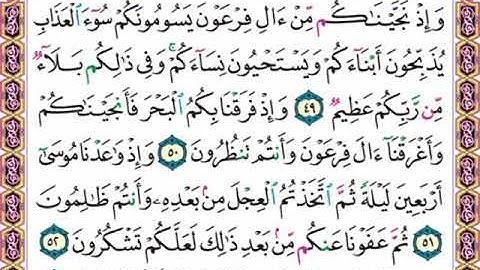 وَإِذْ نَجَّيْنَاكُم مِّنْ ءَالِ فِرْعَوْنَ يَسُومُونَكُمْ سُوٓءَ ٱلْعَذَابِ
يُذَبِّحُونَ أَبْنَآءَكُمْ وَيَسْتَحْيُونَ نِسَآءَكُمْ ۚ وَفِى ذَٰلِكُم بَلَآءٌ
مِّن رَّبِّكُمْ عَظِيمٌ ٤٩ وَإِذْ فَرَقْنَا بِكُمُ ٱلْبَحْرَ فَأَنجَيْنَاكُمْ
وَأَغْرَقْنَآ ءَالَ فِرْعَوْنَ وَأَنتُمْ تَنظُرُونَ ٥٠ وَإِذْ وَٰعَدْنَا مُوسَىٰٓ
أَرْبَعِينَ لَيْلَةً ثُمَّ ٱتَّخَذْتُمُ ٱلْعِجْلَ مِنۢ بَعْدِهِۦ وَأَنتُمْ ظَٰلِمُونَ
٥١ ثُمَّ عَفَوْنَا عَنكُم مِّنۢ بَعْدِ ذَٰلِكَ لَعَلَّكُمْ تَشْكُرُونَ ٥٢